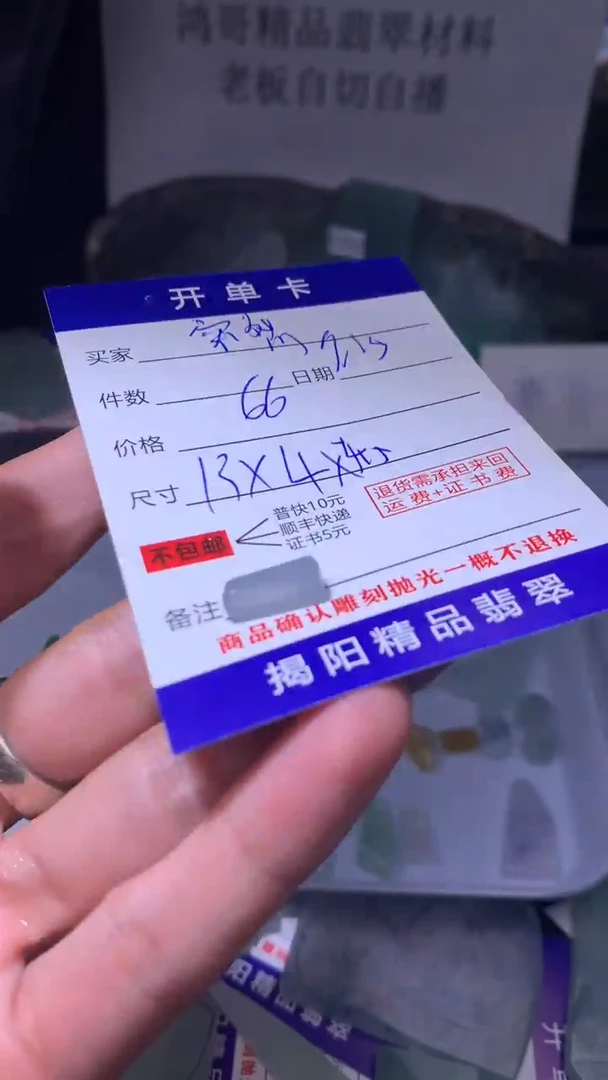 鸿哥精品翡翠材料
老板自切自播
开单卡
买家
件数 日期 9.15
价格 66
尺寸 13X4X
退货需承担来回
运费+证书费
不包邮
普快10元
顺丰快递
证书5元
备注
商品确认雕刻抛光一概不退换
揭阳精品翡翠